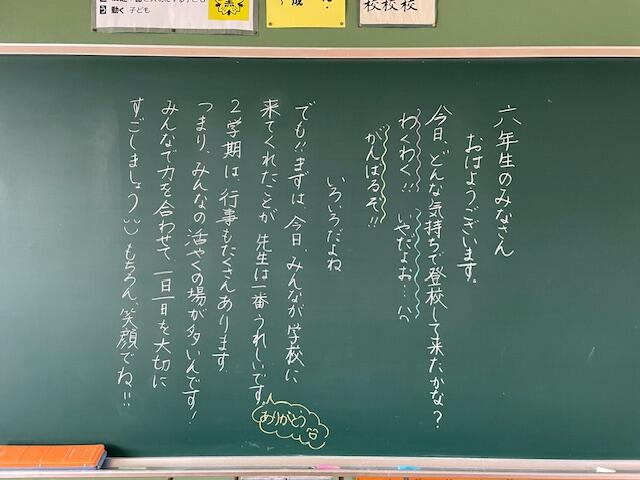 動く 子ども
校校校
六年生のみなさん
おはようございます。
今日、どんな気持ちで登校して来たかな？
わくわく!! いやだよお…
がんばるぞ!!
いろいろだよね
でも!!まずは、今日、みんなが学校に
来てくれたことが、先生は一番うれしいです。
ありがとう
2学期は、行事もたくさんあります。
つまり、みんなの活やくの場が多いんです！
みんなで力を合わせて、一日一日を大切に
すごしましょう もちろん、笑顔でね!!